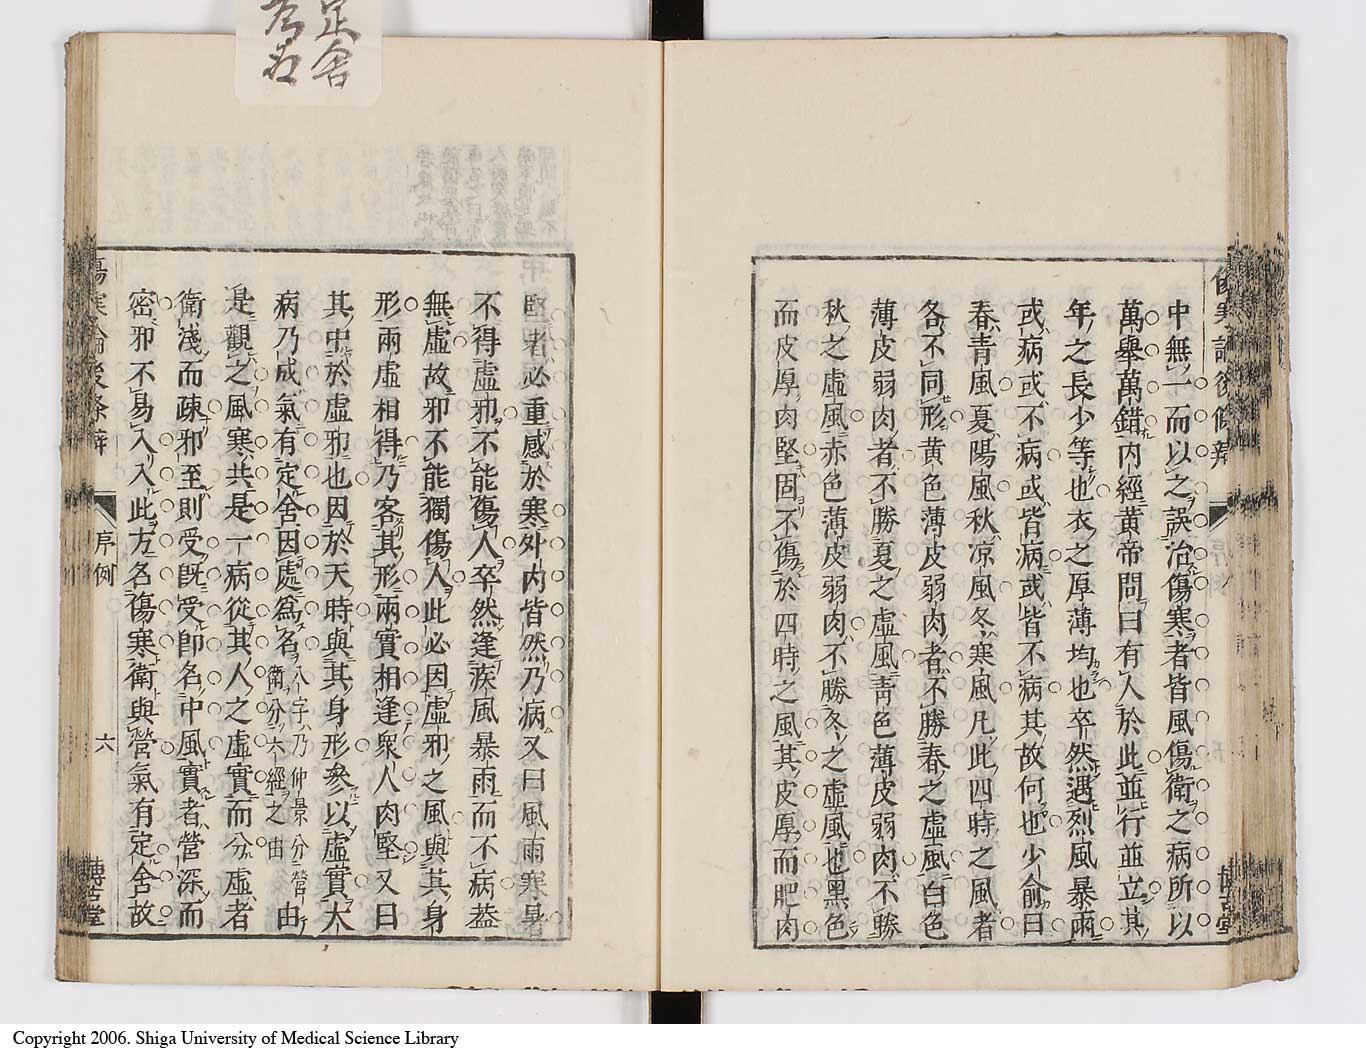 中無一而以之誤治傷寒者皆風傷衛之病所以
萬舉萬錯内經黄帝問曰有人於此並行並立其
年之長少等也衣之厚薄均也卒然遇烈風暴雨
或病或不病或皆病或皆不病其故何也少俞曰
春青風夏陽風秋凉風冬寒風凡此四時之風者
各不同形黄色薄皮弱肉者不勝春之虛風白色
薄皮弱肉者不勝夏之虛風青色薄皮弱肉不勝
秋之虛風赤色薄皮弱肉不勝冬之虛風也黑色
而皮厚肉堅固不傷於四時之風其皮厚而肥肉
堅者必重感於寒外内皆然乃病又曰風雨寒暑
不得虛邪不能傷人卒然逢疾風暴雨而不病葢
無虛故邪不能獨傷人此必因虛邪之風與其身
形兩虛相得乃客其形兩實相逢衆人肉堅又曰
其中於虛邪也因於天時與其身形參以虛實大
病乃成氣有定舍因處爲名八字乃仲景分營衛分六經之由由
是觀之風寒共是一病從其人之虛實而分虛者
衛淺而疎邪至則受既受卽名中風實者營深而
密邪不易入入此方名傷寒衛與營氣有定舍故
傷寒論後條辨
序例
六
博古堂
定舍
Copyright 2006. Shiga University of Medical Science Library